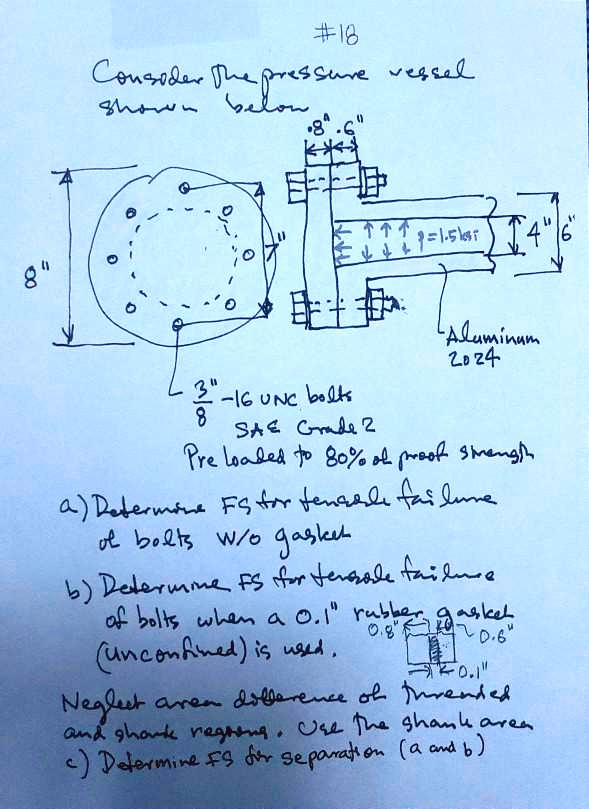 #18
Consoder The pressure vessel
shown below
.8" .6"
8"
7"
p=1.5ksi
4"
6"
Aluminum
2024
3"/8 -16 UNC bolts
SAE Grade 2
Preloaded to 80% of proof strength
a) Determine FS for tensile failure
of bolts w/o gasket
b) Determine FS for tensile failure
of bolts when a 0.1" rubber gasket
(unconfined) is used.
0.8"
0.6"
0.1"
Neglect area difference of threaded
and shank regions. Use the shank area
c) Determine FS for separation (a and b)